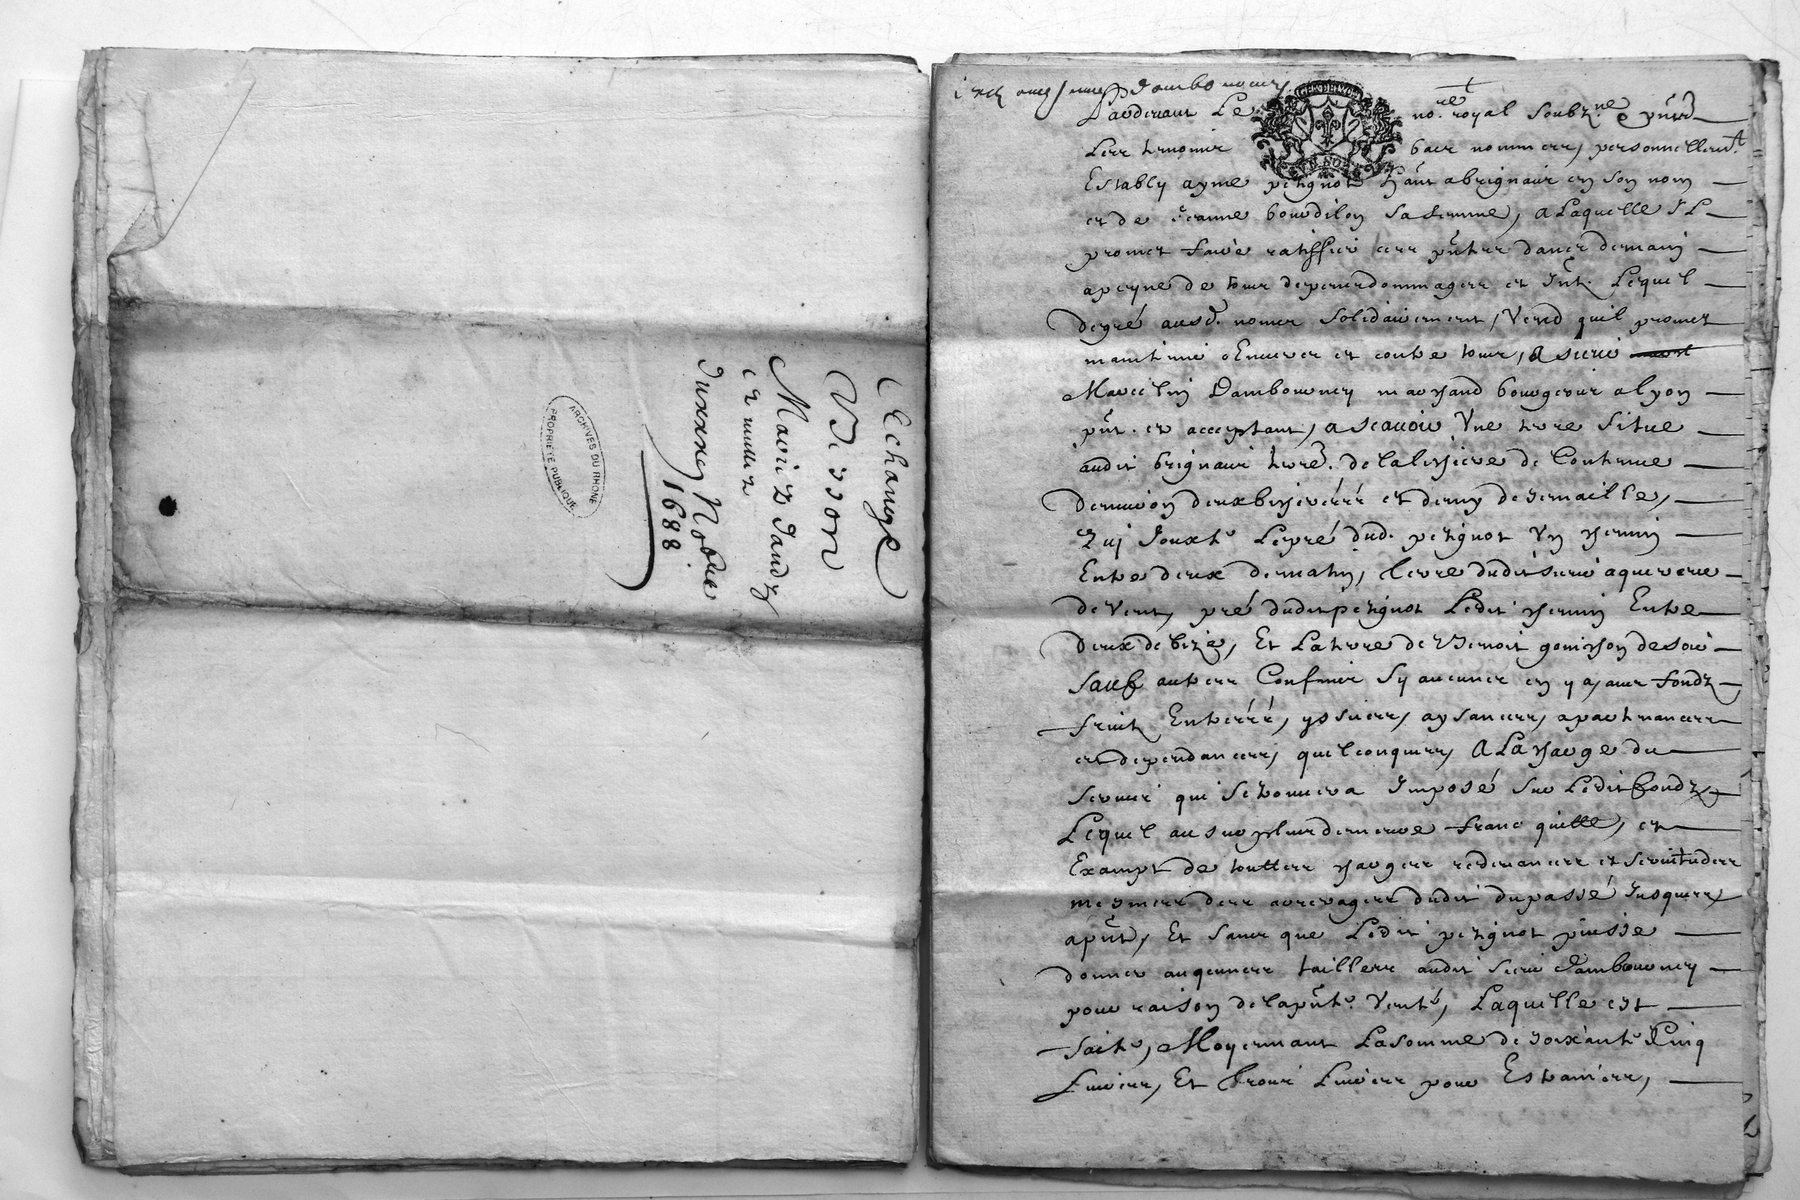 Echange
Visson
et mutuez
Durxxey No.re
1688
ARCHIVES DU RHONE
PROPRIÉTÉ PUBLIQUE
GEN DE LYON
UN SOL
Pardevant Le no.re royal soubz.ne e pn̄td
Les tesmoins bas nommes, personnellem.t
Estably ayme petignot han̄t a brignais en son nom
et de jeanne bourdilon sa femme, a Laquelle JL
promet faire ratiffier ces pn̄tes dans demain
a peyne de tous despens dommages et Jn̄t. Lequel
degré ausd. noms solidairement, Vend quil promet
maintenir et contre tous, a sieur
Marcelin Dambourney marchand bourgeois a lyon
pn̄t. et acceptant, a scavoir Une terre situe
audit brignais de Contenue
denviron deux bicherées et demy de semaille,
Qui Jouxte Le pré dud. petignot Un chemin
Entre deux de matin, terre dudit sieur aquereur
de Vent, pré dudit petignot Ledit chemin Entre
deux de bize, Et La terre de Benoit gonichon de soir
sauf autres Confins sy aucunes en y a, avec fondz
fruitz Entrées, yssues, aysances, apartenances
et dependances, quelconques, A La charge du
servis qui se trouvera Imposé sur Ledit fondz
Lequel au surplus demeure franc quitte, et
Exampt de touttes charges redevances et servitudes
mesmes des arrerages dudit du passé Jusques
a pn̄t, Et sans que Ledit petignot puisse
donner aucunes tailles audit sieur Dambourney
pour raison de la pn̄te Vente, Laquelle est
faite, Moyennant La somme de soixante Cinq
Livres, Et trois Livres pour Estraines,